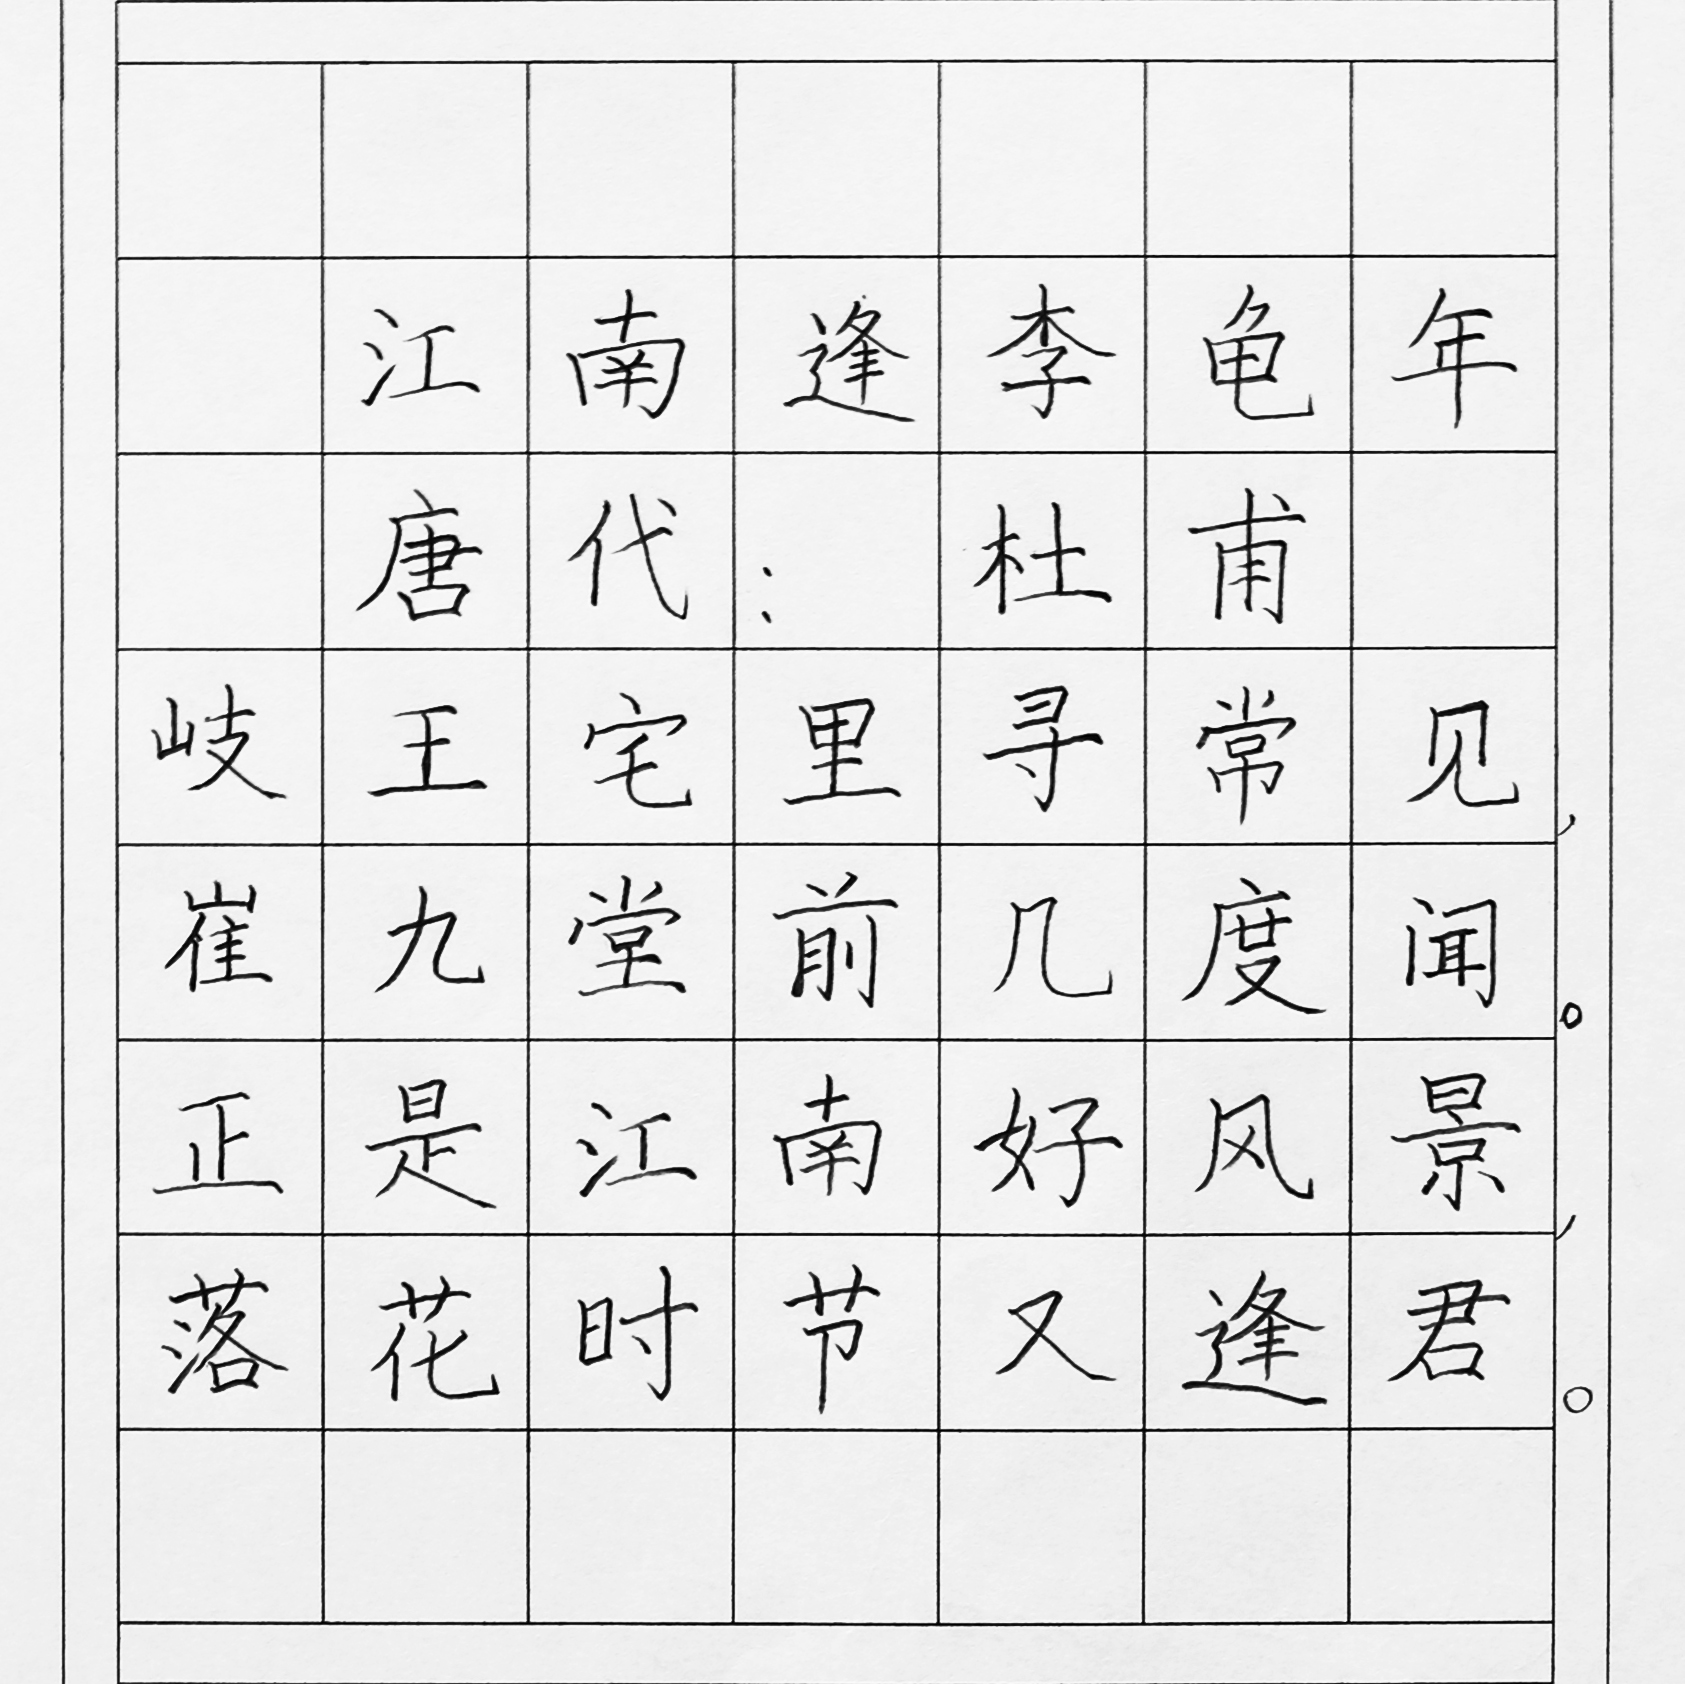 江南逢李龟年
唐代：杜甫
岐王宅里寻常见，
崔九堂前几度闻。
正是江南好风景，
落花时节又逢君。